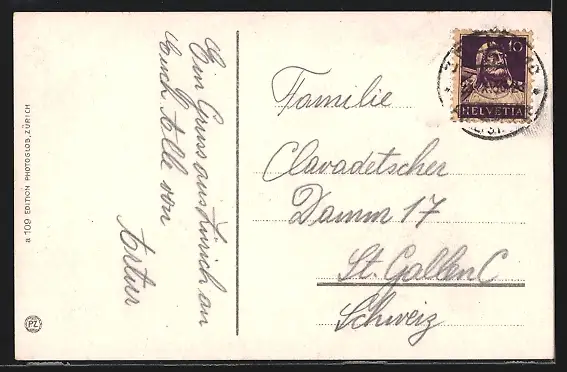 Ein Gruss aus Zürich an
Euch Alle von
Artur
Familie
Clavadetscher
Damm 17
St. Gallen C
Schweiz
10
HELVETIA
a 109 EDITION PHOTOGLOB, ZÜRICH
PZ